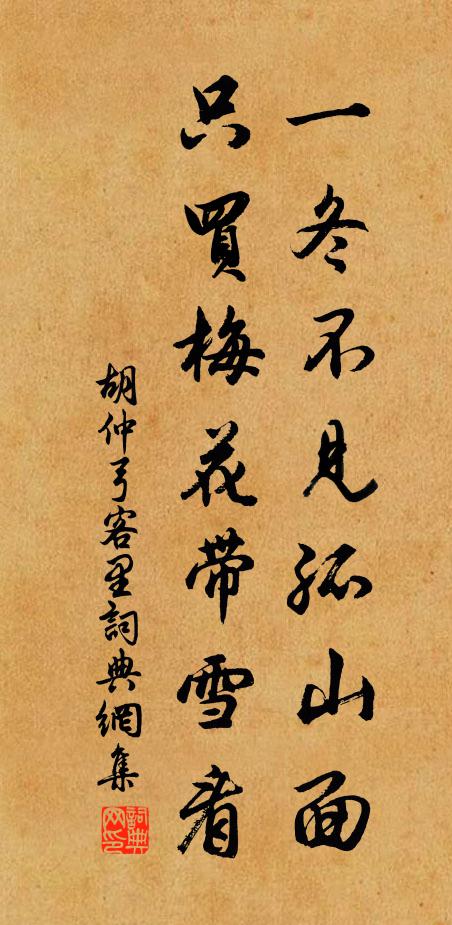 一冬不見孤山面
只買梅花帶雪看
胡仲弓客里詞典網集
詞典網印